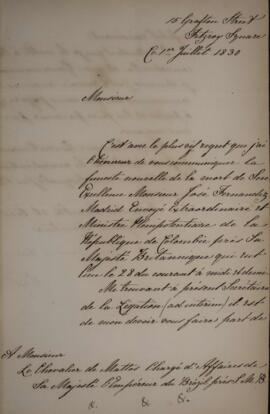 15 Grafton Street
Fitzroy Square
Ce 1er Juillet 1830
Monsieur
C'est avec le plus vif regret que j'ai
l'honneur de vous communiquer la
funeste nouvelle de la mort de Son
Excellence Monsieur José Fernandez
Madrid Envoyé Extraordinaire et
Ministre Plenipotentiaire de la
République de Colombie près Sa
Majesté Britannique qui eut
lieu le 28 du courant à midi et demi
Me trouvant à présent Secrétaire
de la Legation (ad interim) il est
de mon devoir vous faire part de
A Monsieur
Le Chevalier de Mattos Chargé d'Affaires de
Sa Majesté l'Empereur du Brésil près S.M.B.
&. &. &.